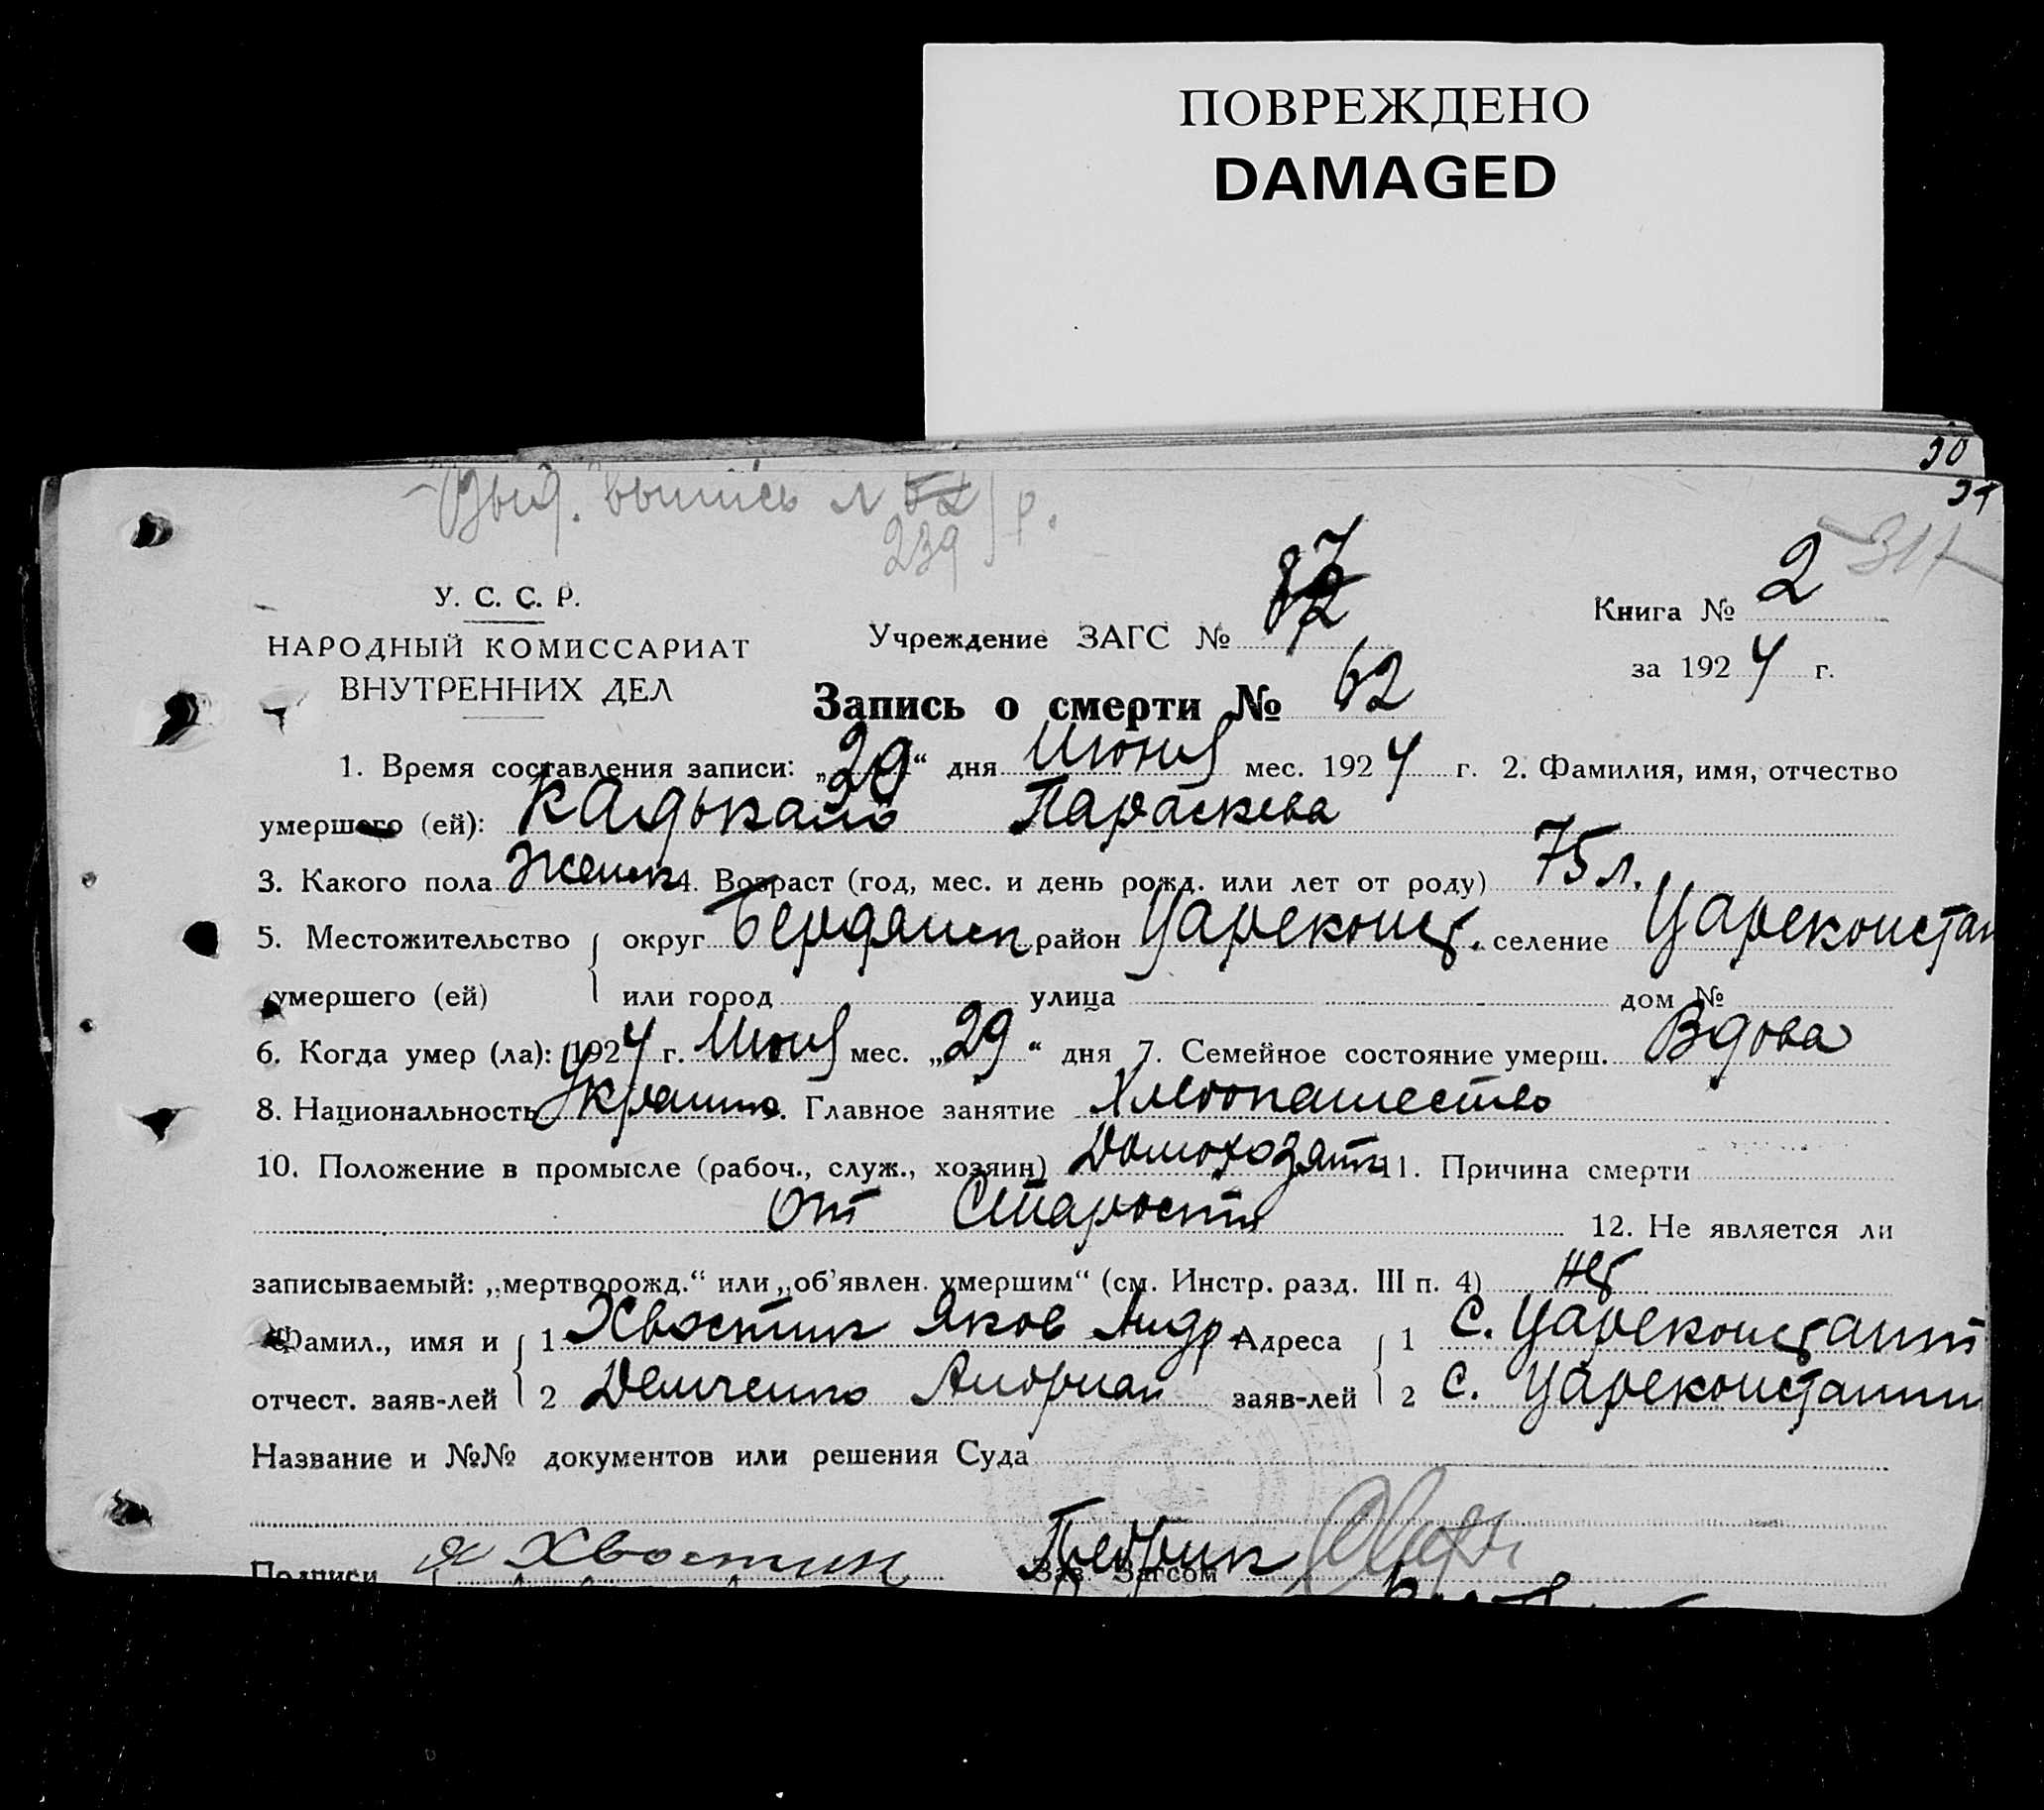 ПОВРЕЖДЕНО
DAMAGED
30
31
Выд. выпись № 62
239
р.
У. С. С. Р.
НАРОДНЫЙ КОМИССАРИАТ
ВНУТРЕННИХ ДЕЛ
Учреждение ЗАГС №
Книга № 2
за 1924 г.
Запись о смерти № 62
1. Время составления записи: „29“ дня Июня мес. 1924 г. 2. Фамилия, имя, отчество
умершего (ей): Кадькало Параскева
3. Какого пола Женск 4. Возраст (год, мес. и день рожд. или лет от роду) 75 л.
5. Местожительство округ Бердянск район Цареконст. селение Цареконстан
умершего (ей) или город улица дом №
6. Когда умер (ла): 1924 г. Июня мес. „29“ дня 7. Семейное состояние умерш. Вдова
8. Национальность Украин. Главное занятие Хлебопашество
10. Положение в промысле (рабоч., служ., хозяин) 11. Причина смерти
от Старости 12. Не является ли
записываемый: „мертворожд.“ или „об’явлен. умершим“ (см. Инстр. разд. III п. 4) нет
Фамил., имя и 1 Хвостик Яков Андр. Адреса 1 с. Цареконстант
отчест. заяв-лей 2 Демченко Андриан заяв-лей 2 с. Цареконстантин
Название и №№ документов или решения Суда
Подписи Я Хвостик Зав. Загсом